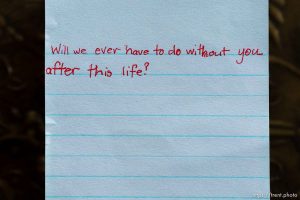 Will we ever have to do without you
after this life?